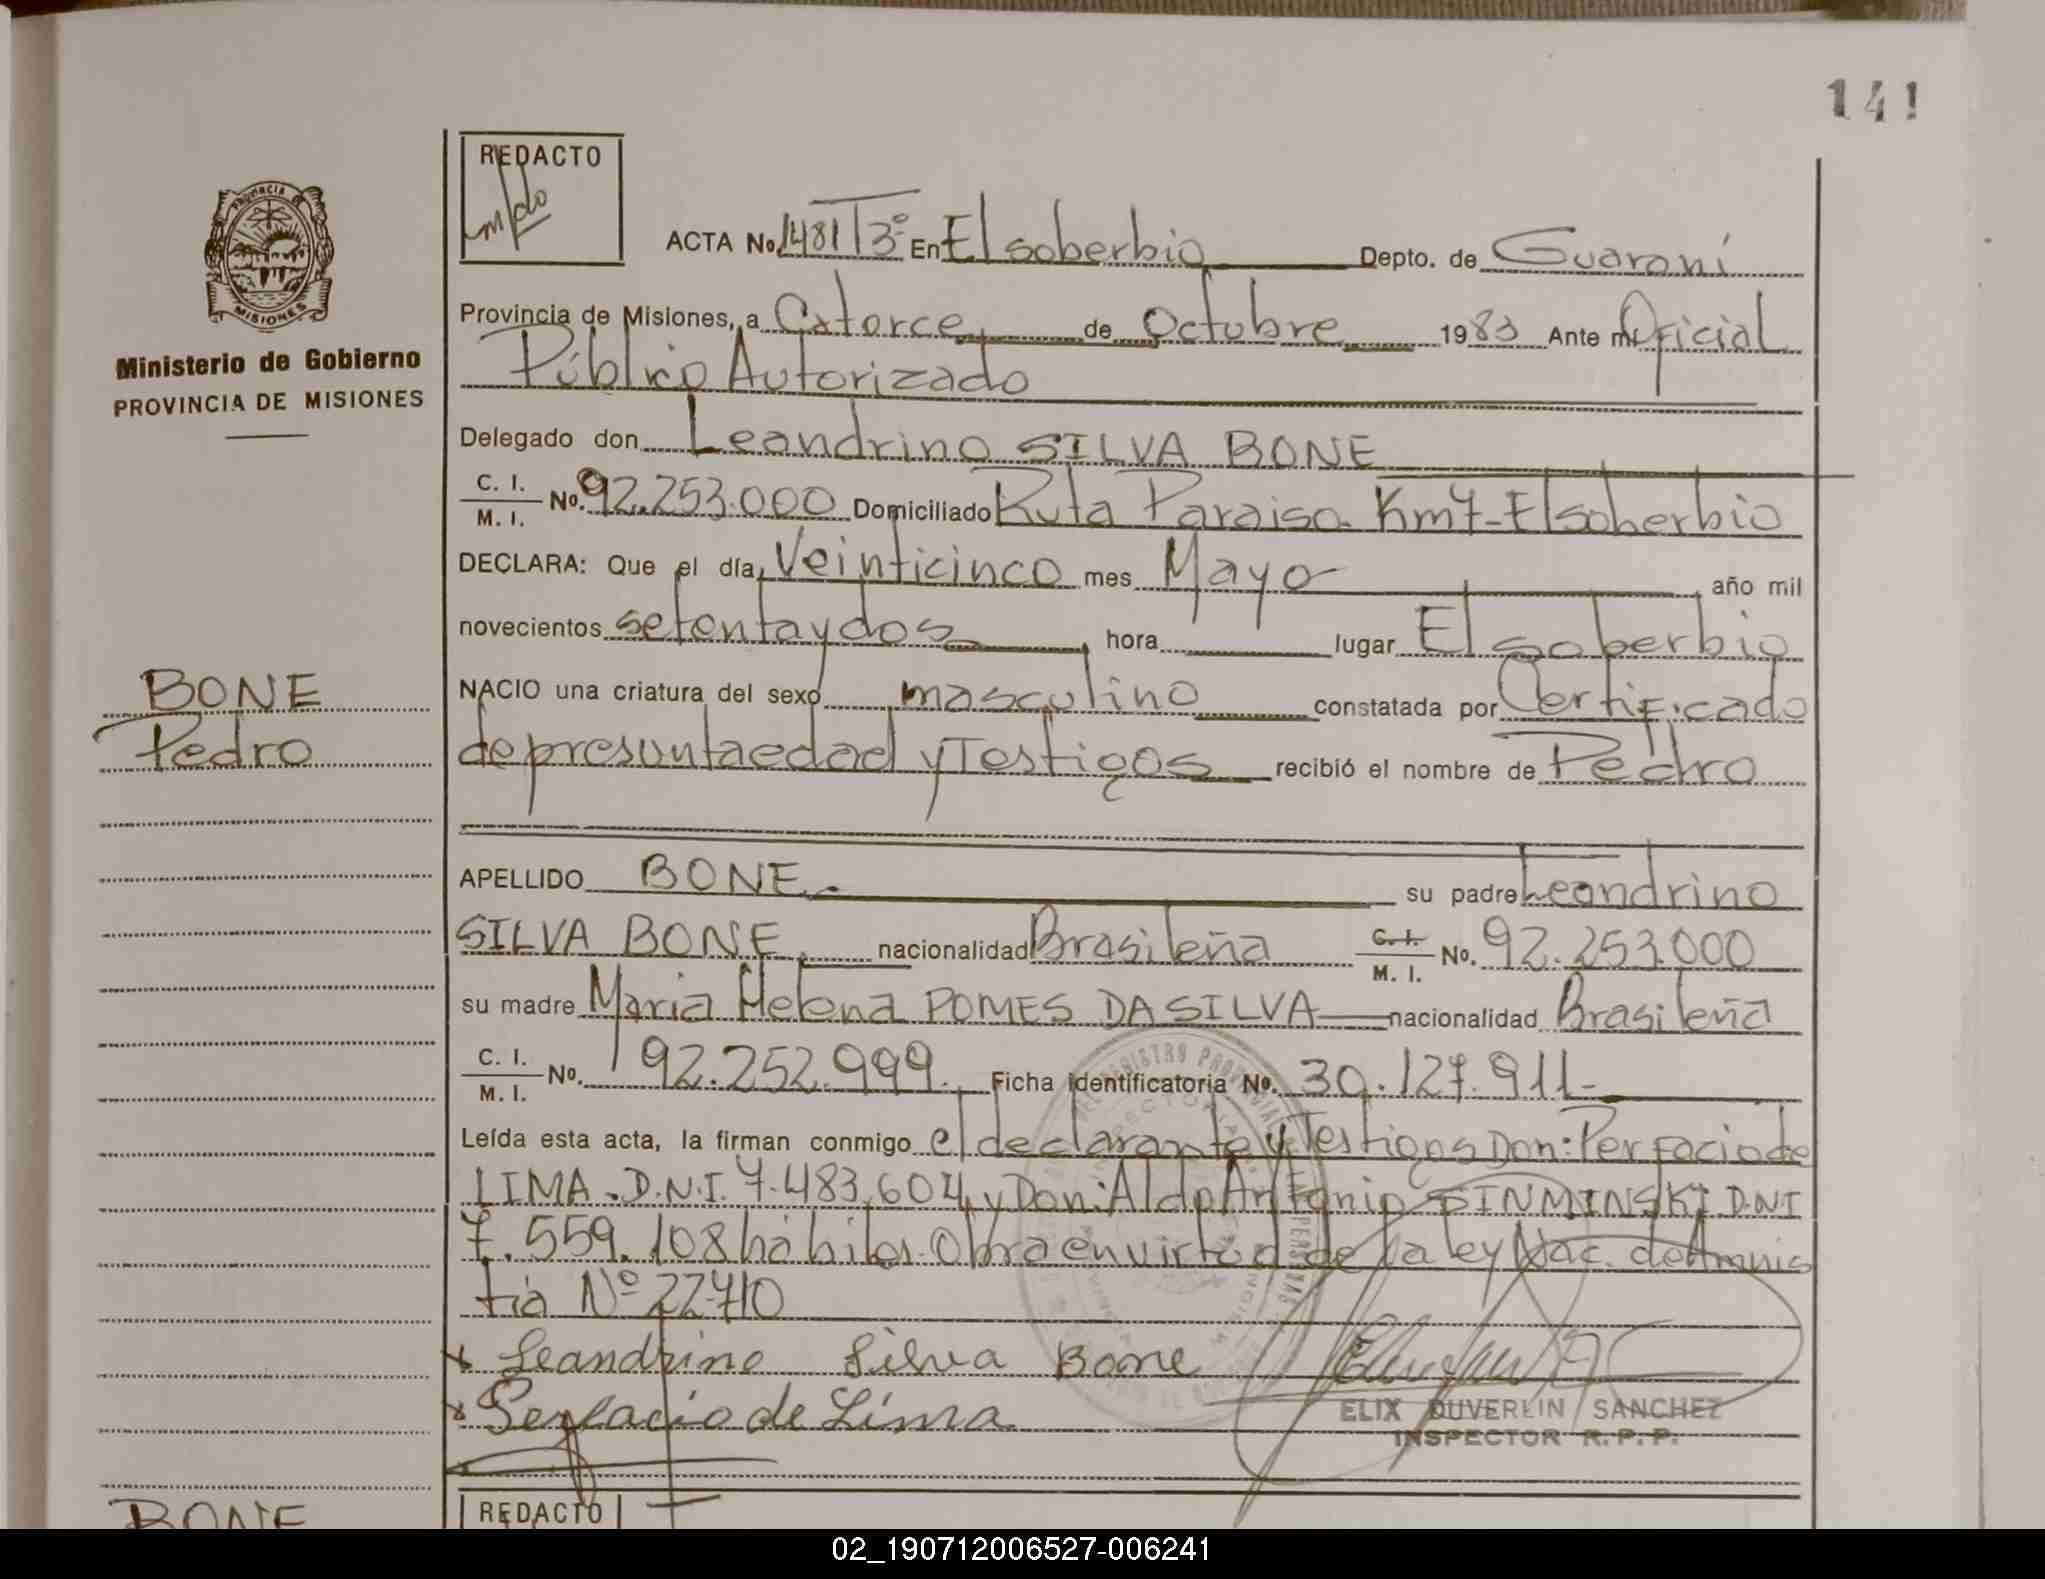 141
REDACTO
PROVINCIA
MISIONES
Ministerio de Gobierno
PROVINCIA DE MISIONES
ACTA No. 1481 T 3º En El soberbio Depto. de Guaraní
Provincia de Misiones, a Catorce de Octubre 1983 Ante mí Oficial
Público Autorizado
Delegado don Leandrino SILVA BONE
C. I. / M. I. No. 92.253.000 Domiciliado Ruta Paraiso Km 7 - El soberbio
DECLARA: Que el día Veinticinco mes Mayo año mil
novecientos setentaydos hora lugar El soberbio
NACIO una criatura del sexo masculino constatada por Certificado
de presuntaedad y Testigos recibió el nombre de Pedro
BONE
Pedro
APELLIDO BONE. su padre Leandrino
SILVA BONE nacionalidad Brasileña C. I. / M. I. No. 92.253.000
su madre Maria Helena POMES DA SILVA nacionalidad Brasileña
C. I. / M. I. No. 92.252.999. Ficha identificatoria No. 30.127.911-
Leída esta acta, la firman conmigo el declarante y Testigos Don: Perfacio de
LIMA. D.N.I. 7.483.604 y Don: Aldo Antonio D.N.I
7.559.108 hábiles. Obra en virtud de la ley Nac. de Amnis
tia Nº 22410
x Leandrino Silva Bone
x Perfacio de Lima
ELIX DUVERLIN SANCHEZ
INSPECTOR R. P. P.
BONE
REDACTO
02_190712006527-006241